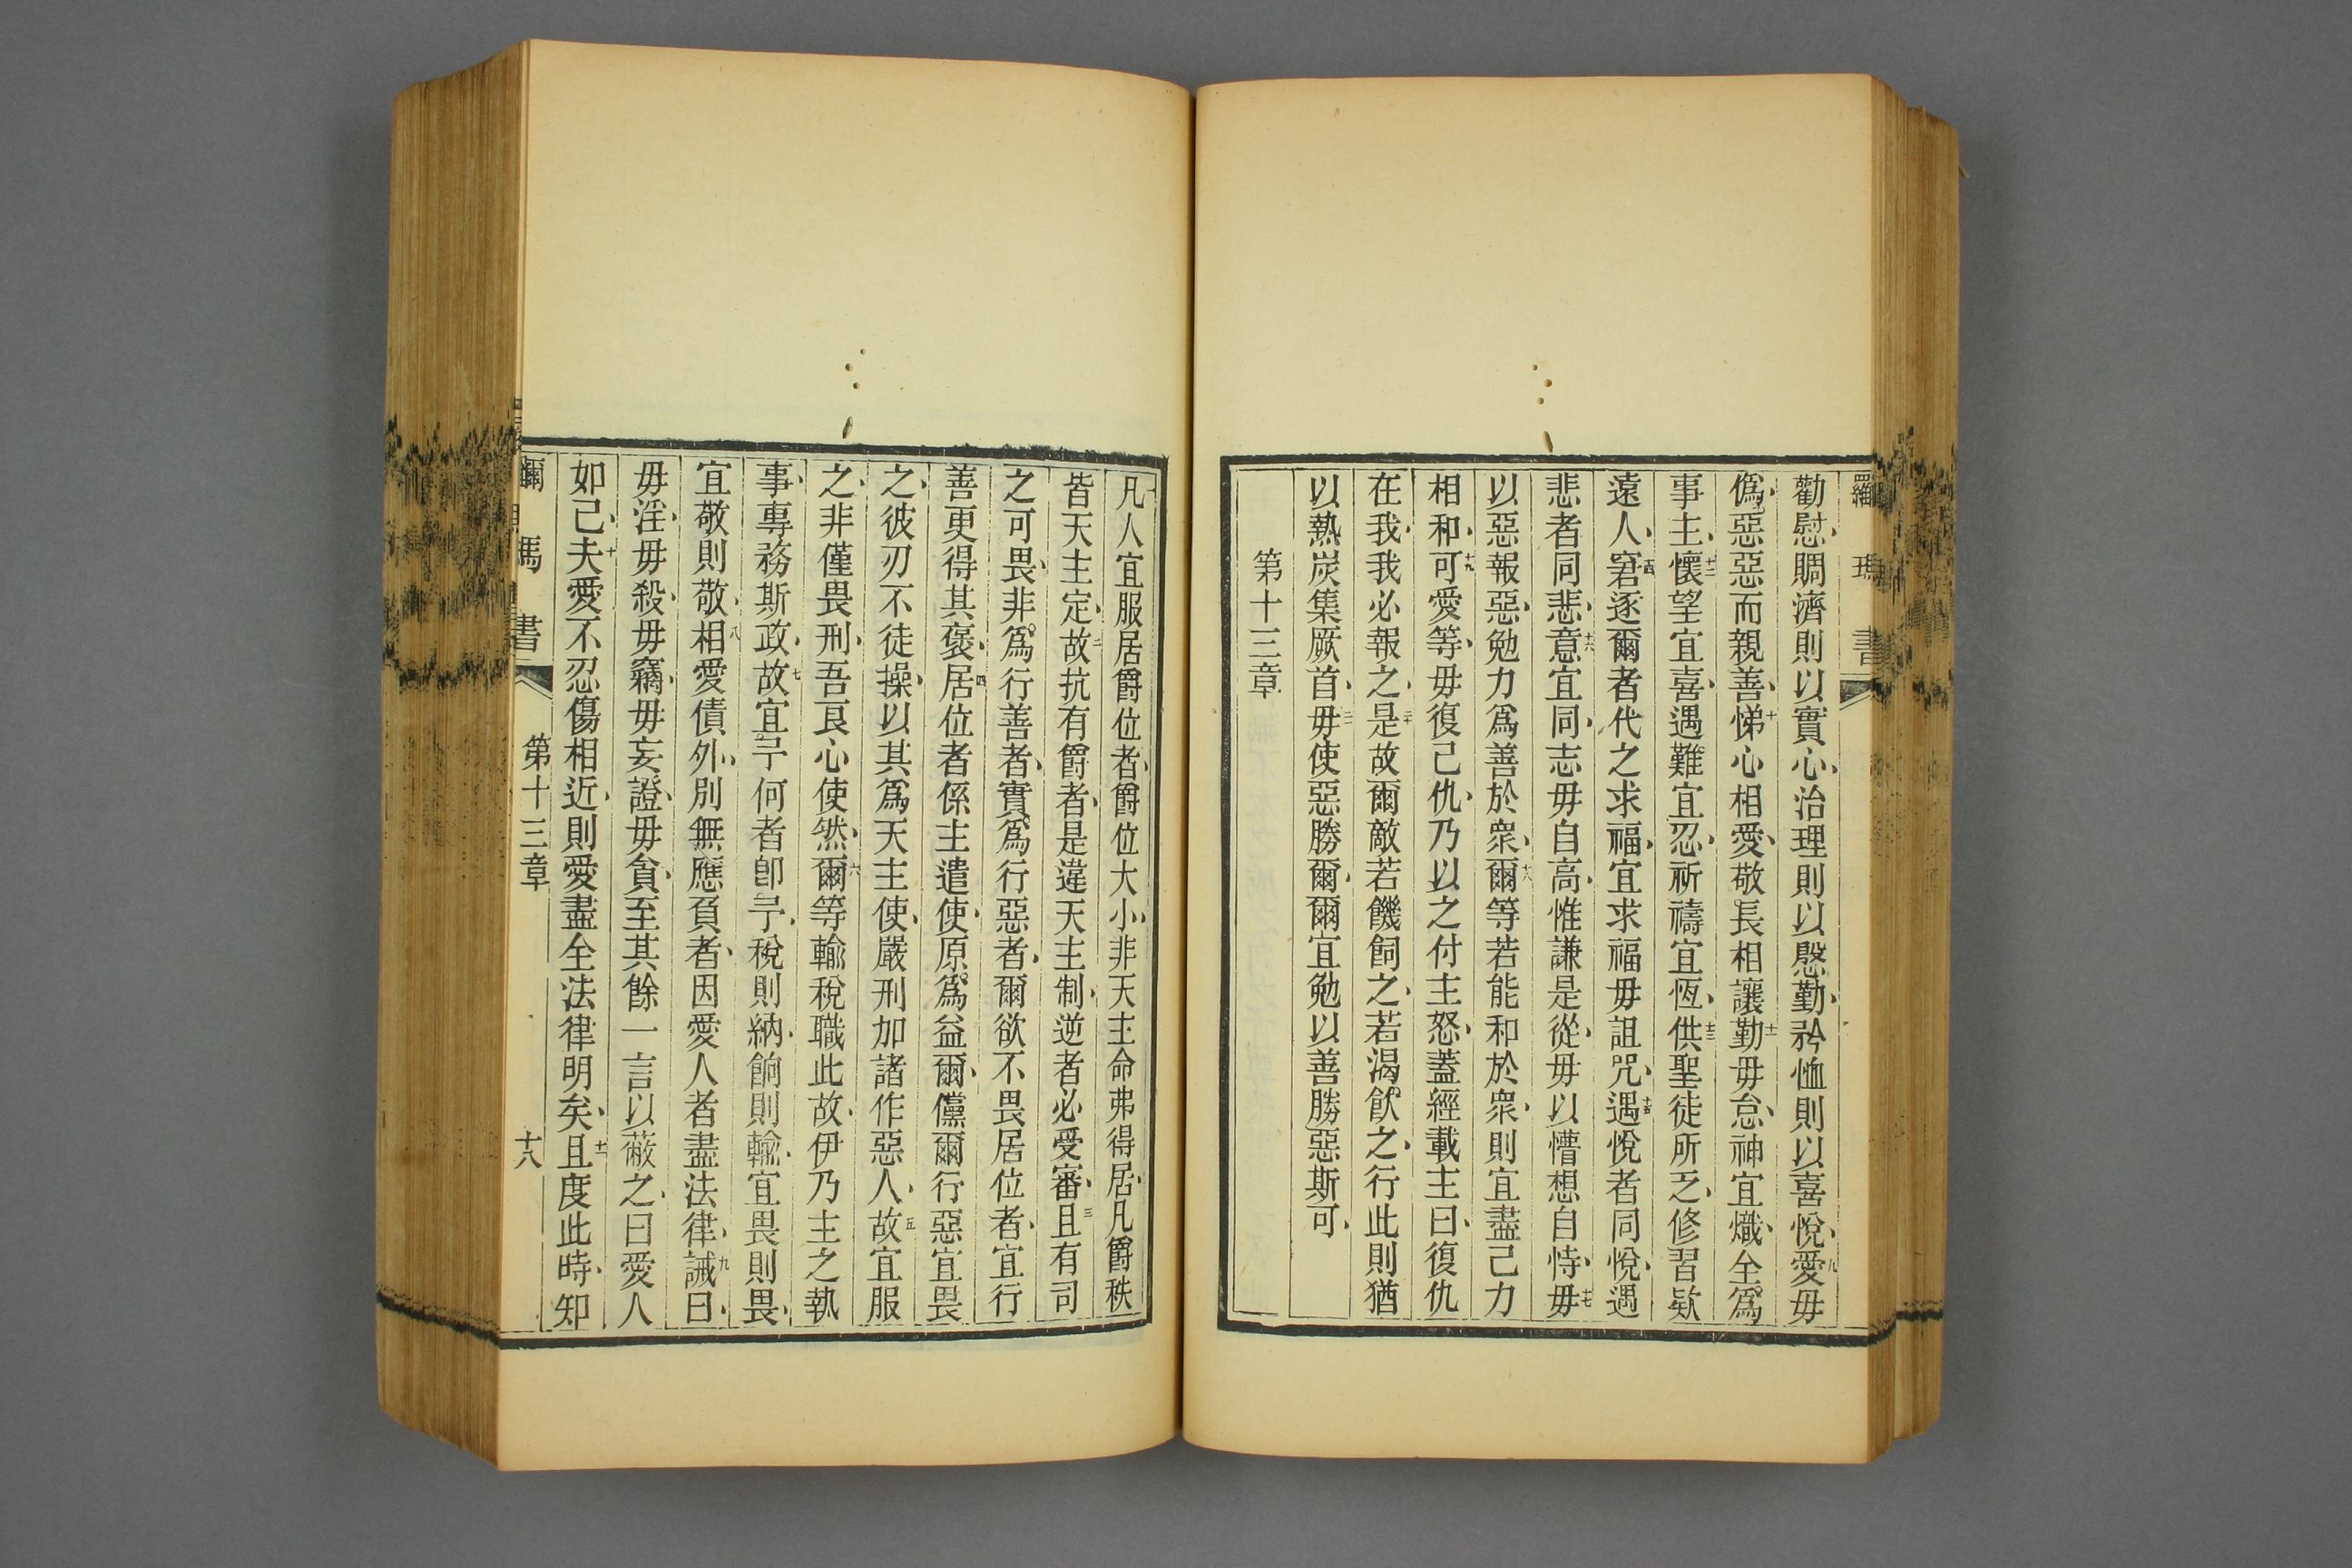 羅 瑪 書
勸慰、賙濟則以實心、治理則以慇勤、矜恤則以喜悅、九愛毋
偽、惡惡而親善、十悌心相愛、敬長相讓、十一勤毋怠、神宜熾、全爲
事主、十二懷望宜喜、遇難宜忍、祈禱宜恆、十三供聖徒所乏、修習欵
遠人、十四窘逐爾者代之求福、宜求福毋詛咒、十五遇悅者同悅、遇
悲者同悲、十六意宜同、志毋自高、惟謙是從、毋以懵想自恃、十七毋
以惡報惡、勉力爲善於衆、十八爾等若能和於衆、則宜盡己力
相和、十九可愛等、毋復己仇、乃以之付主怒、蓋經載主曰、復仇
在我、我必報之、二十是故爾敵若饑飼之、若渴飲之、行此則猶
以熱炭集厥首、二一毋使惡勝爾、爾宜勉以善勝惡斯可、
第十三章
一凡人宜服居爵位者、爵位大小、非天主命弗得居、凡爵秩
皆天主定、二故抗有爵者、是違天主制、逆者必受審、三且有司
之可畏、非爲行善者、實爲行惡者、爾欲不畏居位者、宜行
善更得其褒、四居位者係主遣使、原爲益爾、儻爾行惡宜畏
之、彼刃不徒操、以其爲天主使、嚴刑加諸作惡人、五故宜服
之、非僅畏刑、吾良心使然、六爾等輸稅職此故、伊乃主之執
事、專務斯政、七故宜予何者卽予、稅則納、餉則輸、宜畏則畏、
宜敬則敬、八相愛債外、別無應負者、因愛人者盡法律、九誡曰、
毋淫、毋殺、毋竊、毋妄證、毋貪、至其餘一言以蔽之、曰愛人
如己、十夫愛不忍傷相近、則愛盡全法律明矣、十一且度此時、知
瑪 書 第十三章 十八